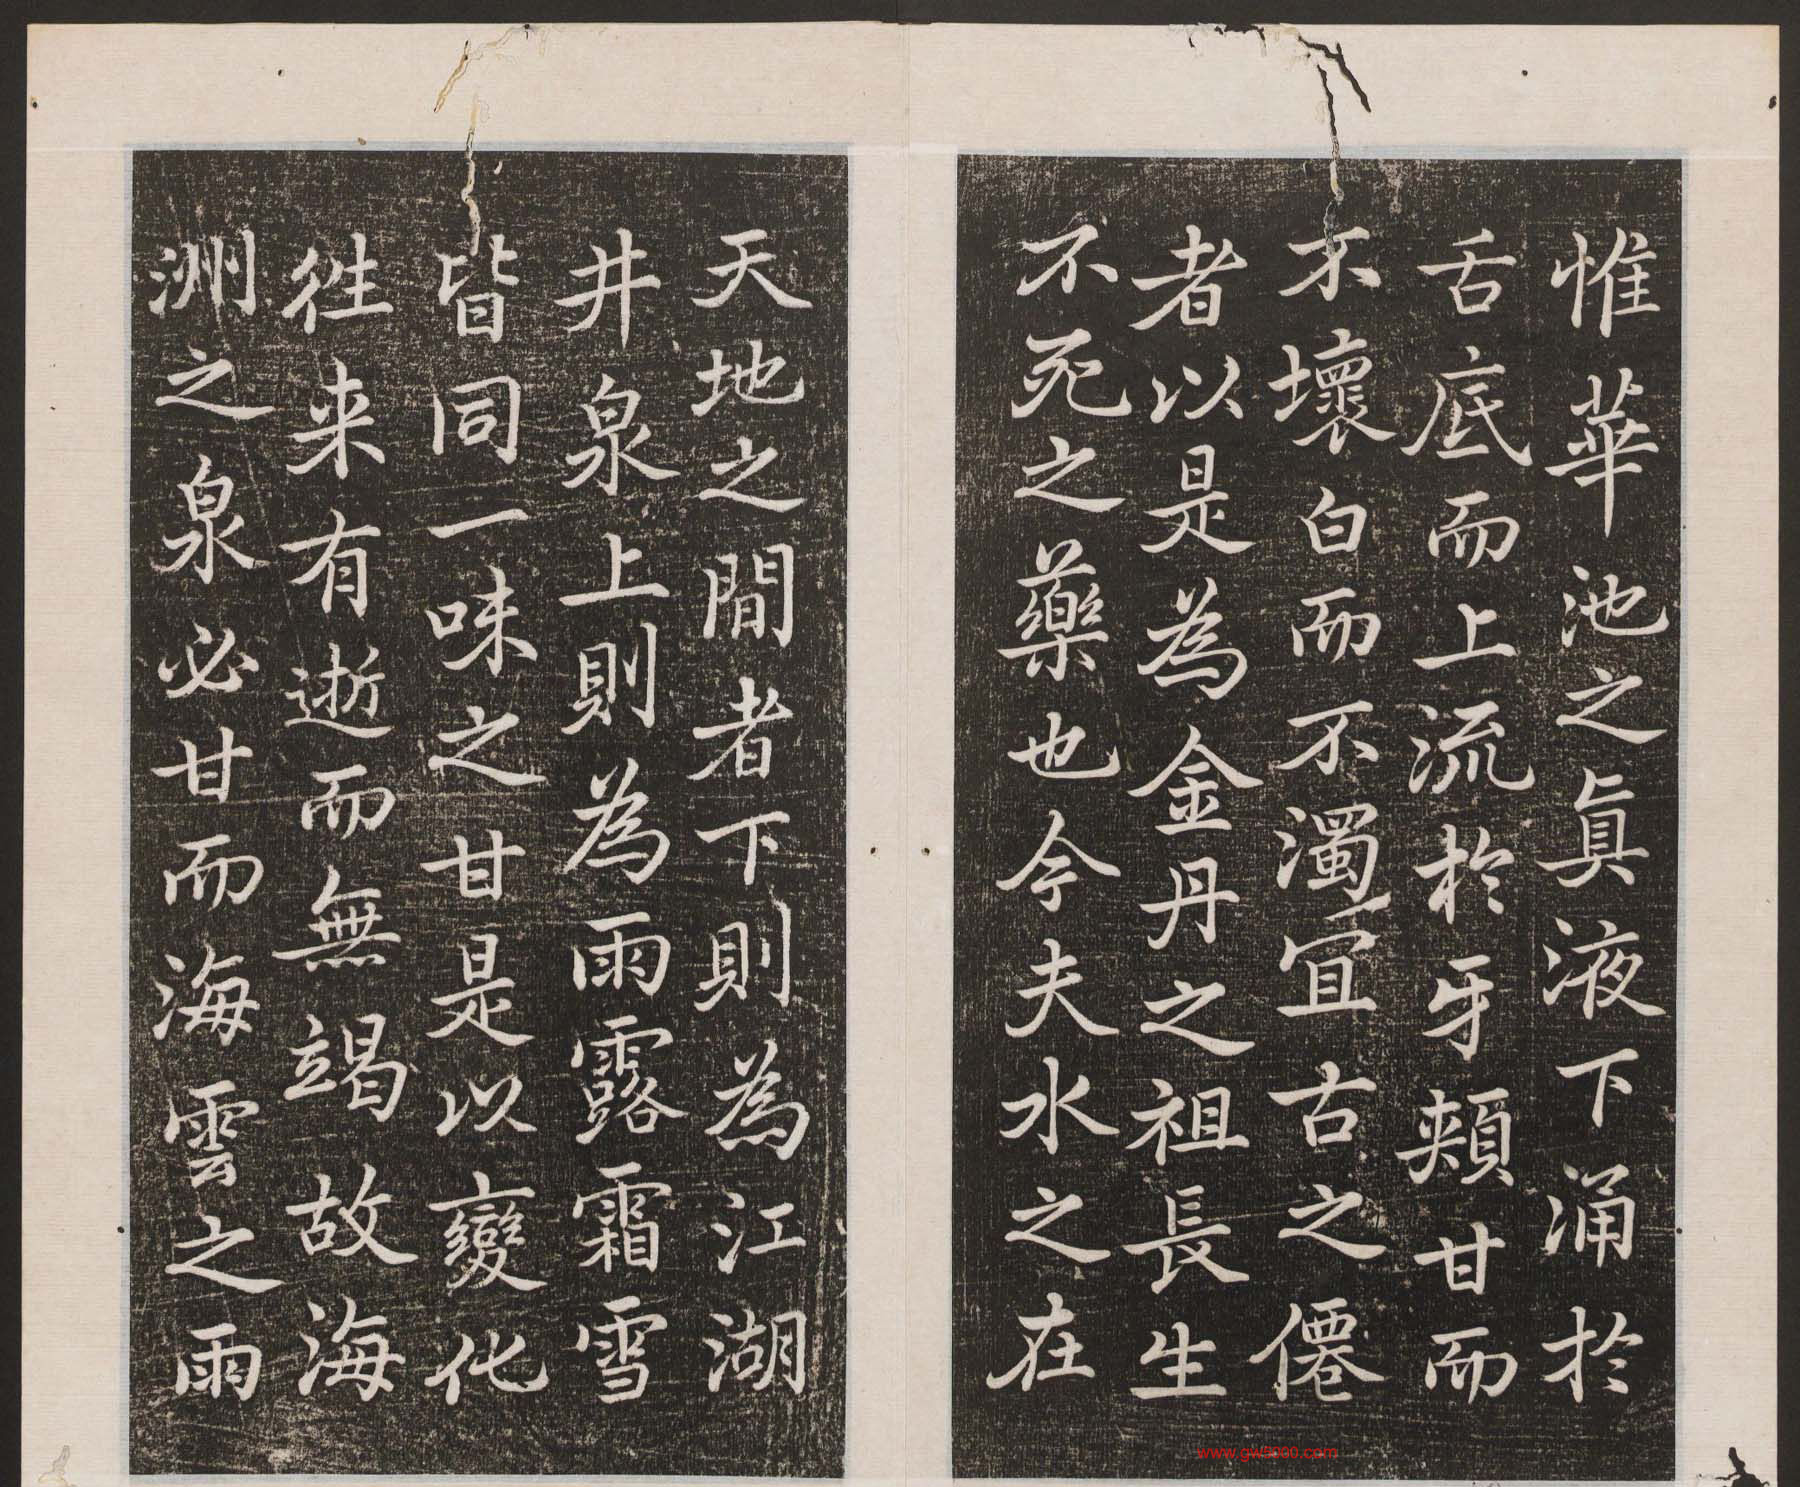 惟華池之真液下涌於
舌底而上流於牙頰甘而
不壞白而不濁宜古之僊
者以是為金丹之祖長生
不死之藥也今夫水之在
天地之間者下則為江湖
井泉上則為雨露霜雪
皆同一味之甘是以變化
徃来有逝而無竭故海
洲之泉必甘而海雲之雨
www.gw8000.com